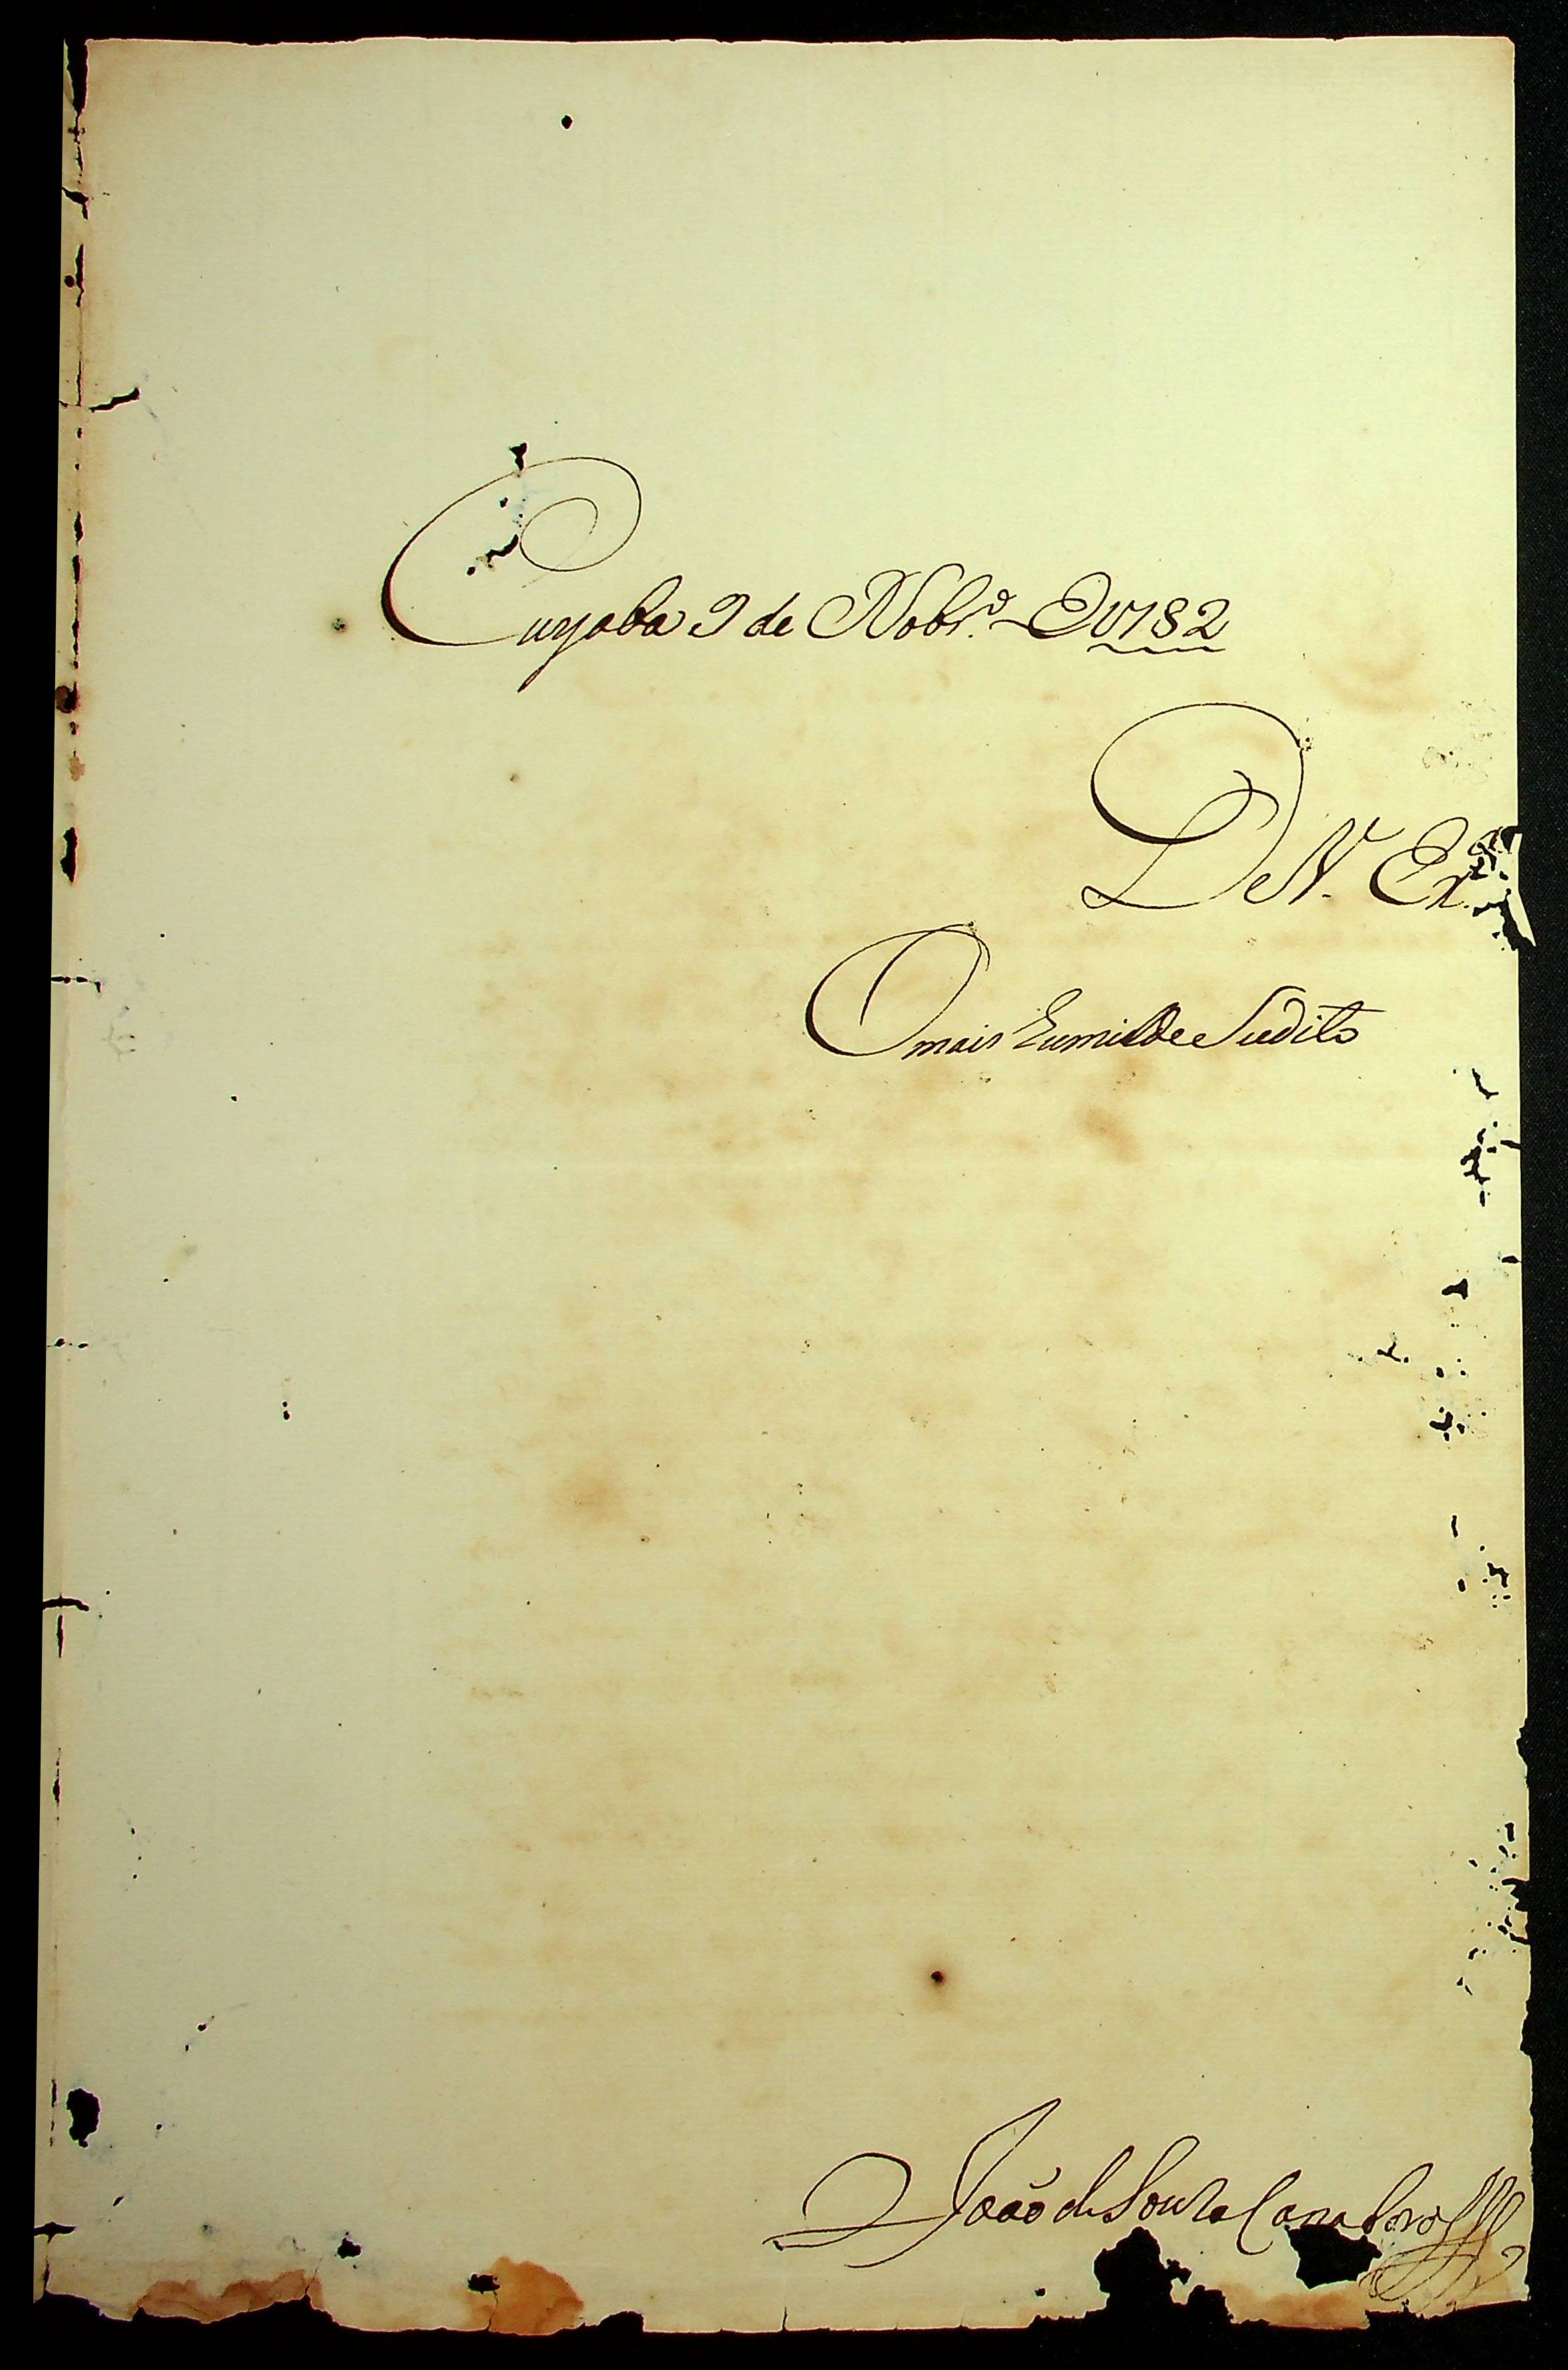 Cuyaba 9 de Nobr.º de 1782
De V. Ex.ª
O mais Humilde Sudito
João de Souza